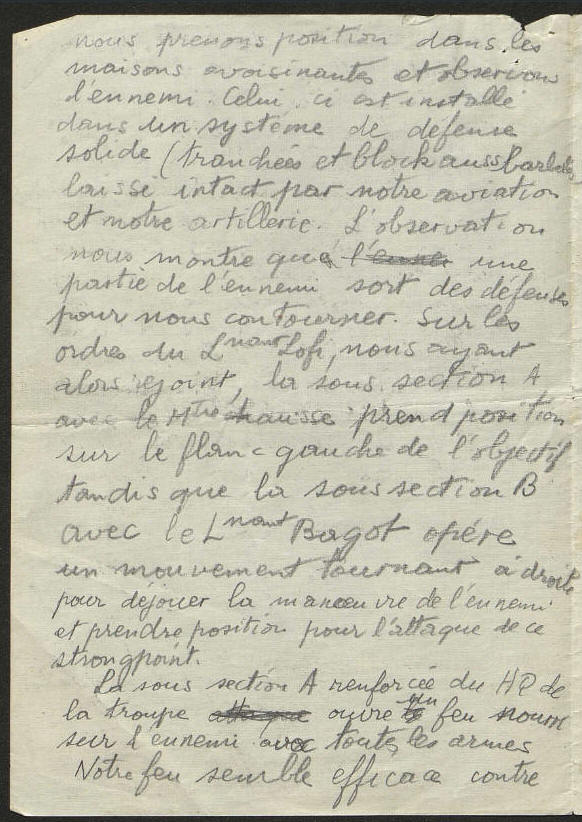 nous prenons position dans les
maisons avoisinantes et observons
l'ennemi. Celui-ci est installé
dans un système de défense
solide (tranchées et blockauss barbelés
laissé intact par notre aviation
et notre artillerie. L'observation
nous montre que une
partie de l'ennemi sort des défenses
pour nous contourner. Sur les
ordres du Lnant Lofi, nous ayant
alors rejoint, la sous section A
avec le Mtre hausse prend position
sur le flanc gauche de l'objectif
tandis que la sous section B
avec le Lnant Bagot opére
un mouvement tournant à droite
pour déjouer la manœuvre de l'ennemi
et prendre position pour l'attaque de ce
strongpoint.
La sous section A renforcée du HQ de
la troupe attaque ouvre un feu nourri
sur l'ennemi avec toutes les armes
Notre feu semble efficace contre